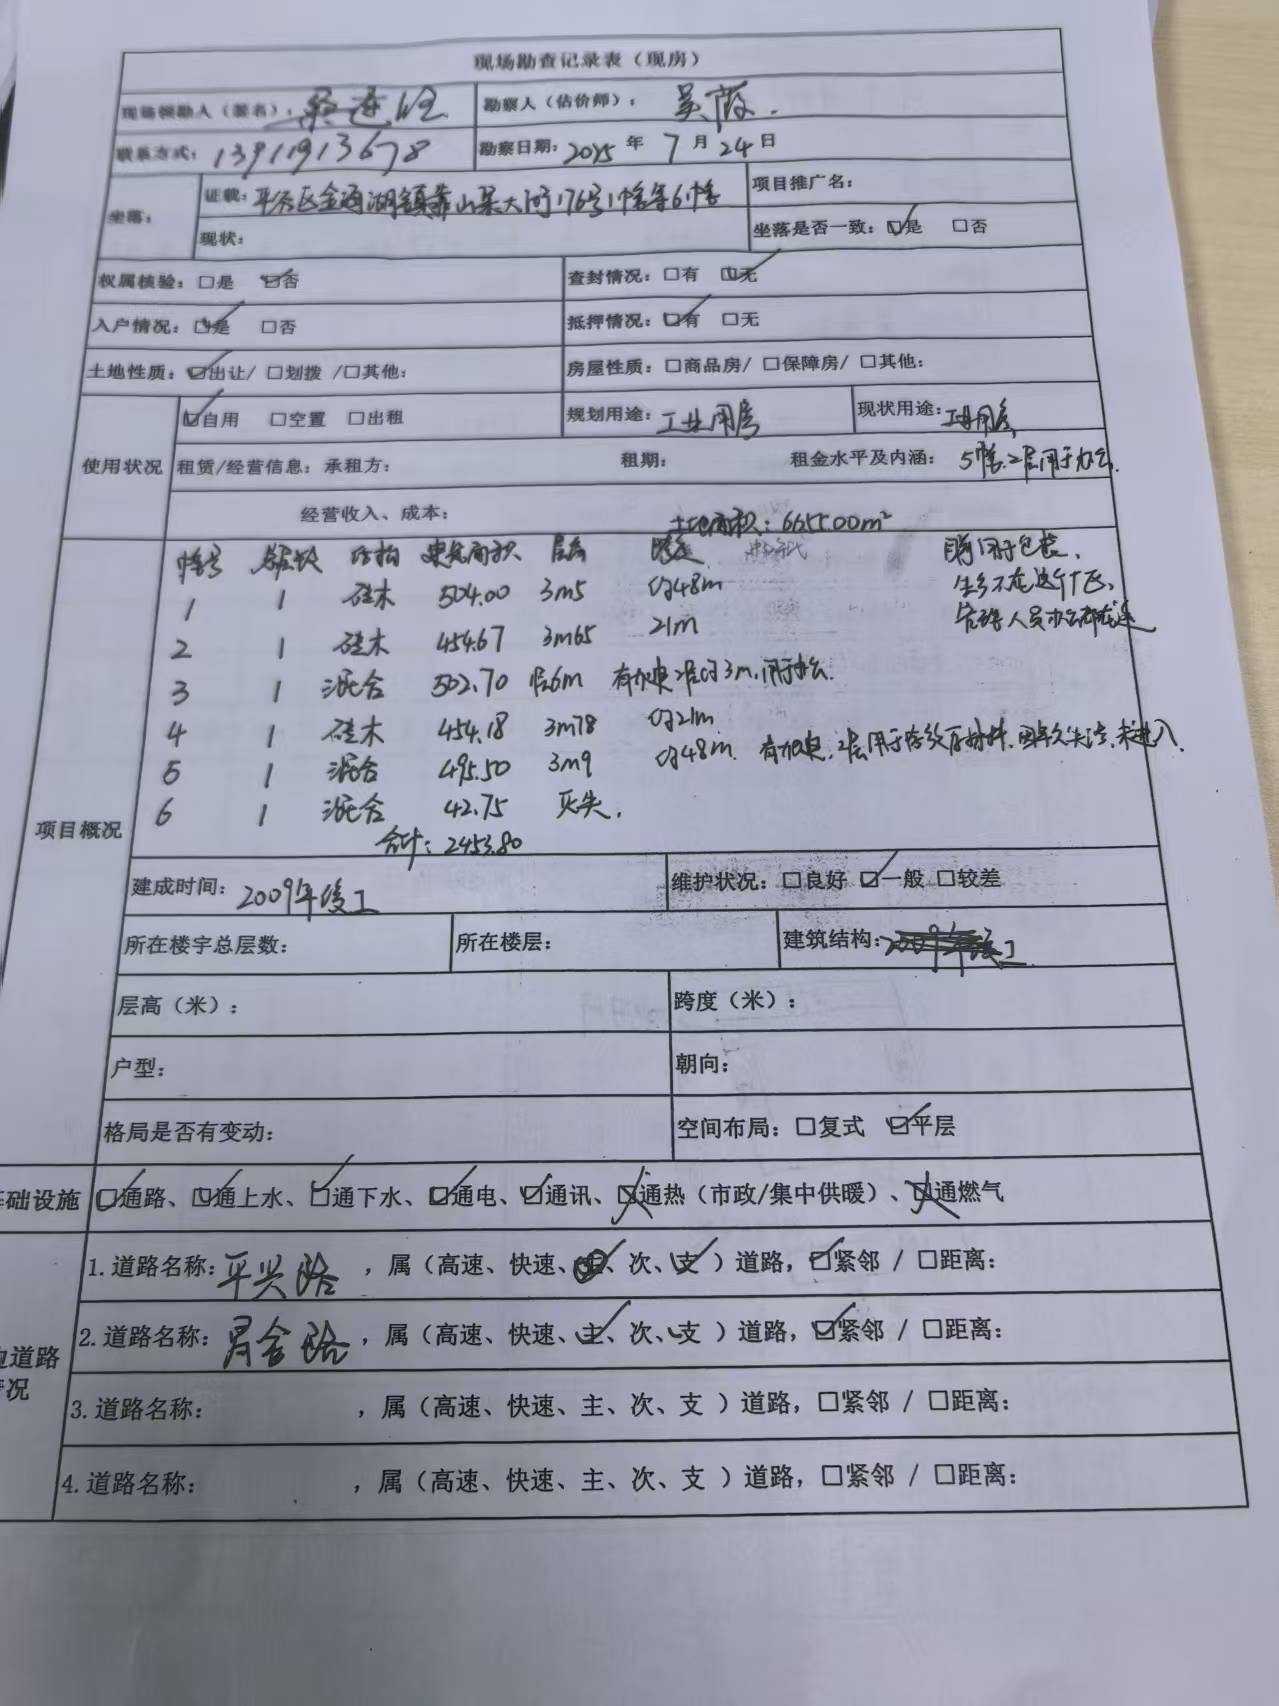 现场勘查记录表（现房）
现场领勘人（签名）： 勘察人（估价师）： 吴薇.
联系方式：13911913678 勘察日期：2025 年 7 月 24 日
坐落： 证载：平谷区金海湖镇靠山集大河176号1幢等6幢 项目推广名：
现状： 坐落是否一致：☑是 □否
权属核验：□是 ☑否 查封情况：□有 ☑无
入户情况：☑是 □否 抵押情况：☑有 □无
土地性质：☑出让/ □划拨 /□其他： 房屋性质：□商品房/ □保障房/ □其他：
使用状况 ☑自用 □空置 □出租 规划用途：工业用房 现状用途：工业用房
租赁/经营信息：承租方： 租期： 租金水平及内涵： 5幢.2层用于办公.
经营收入、成本： 土地面积：6655.00m²
项目概况
幢号 总层数 结构 建筑面积 层高 跨度 目前用于包装,
1 1 砼木 504.00 3m5 约48m 生产不在这个厂区,
2 1 砼木 454.67 3m65 21m 人员办公
3 1 混合 502.70 6m 有加建2层约3m,用于办公.
4 1 砼木 454.18 3m78 约21m
5 1 混合 495.50 3m9 约48m. 有加建.2层用于存放原材料.因年久失注,未进入.
6 1 混合 42.75 灭失.
合计：2453.80
建成时间：2009年竣工 维护状况：□良好 ☑一般 □较差
所在楼宇总层数： 所在楼层： 建筑结构：2009年竣工
层高（米）： 跨度（米）：
户型： 朝向：
格局是否有变动： 空间布局：□复式 ☑平层
基础设施 ☑通路、☑通上水、☑通下水、☑通电、☑通讯、☒通热（市政/集中供暖）、☒通燃气
边道路
情况
1.道路名称：平兴路 ，属（高速、快速、主、次、支 ）道路，☑紧邻 / □距离：
2.道路名称：胥会路 ，属（高速、快速、主、次、支 ）道路，☑紧邻 / □距离：
3.道路名称： ，属（高速、快速、主、次、支 ）道路，□紧邻 / □距离：
4.道路名称： ，属（高速、快速、主、次、支 ）道路，□紧邻 / □距离：